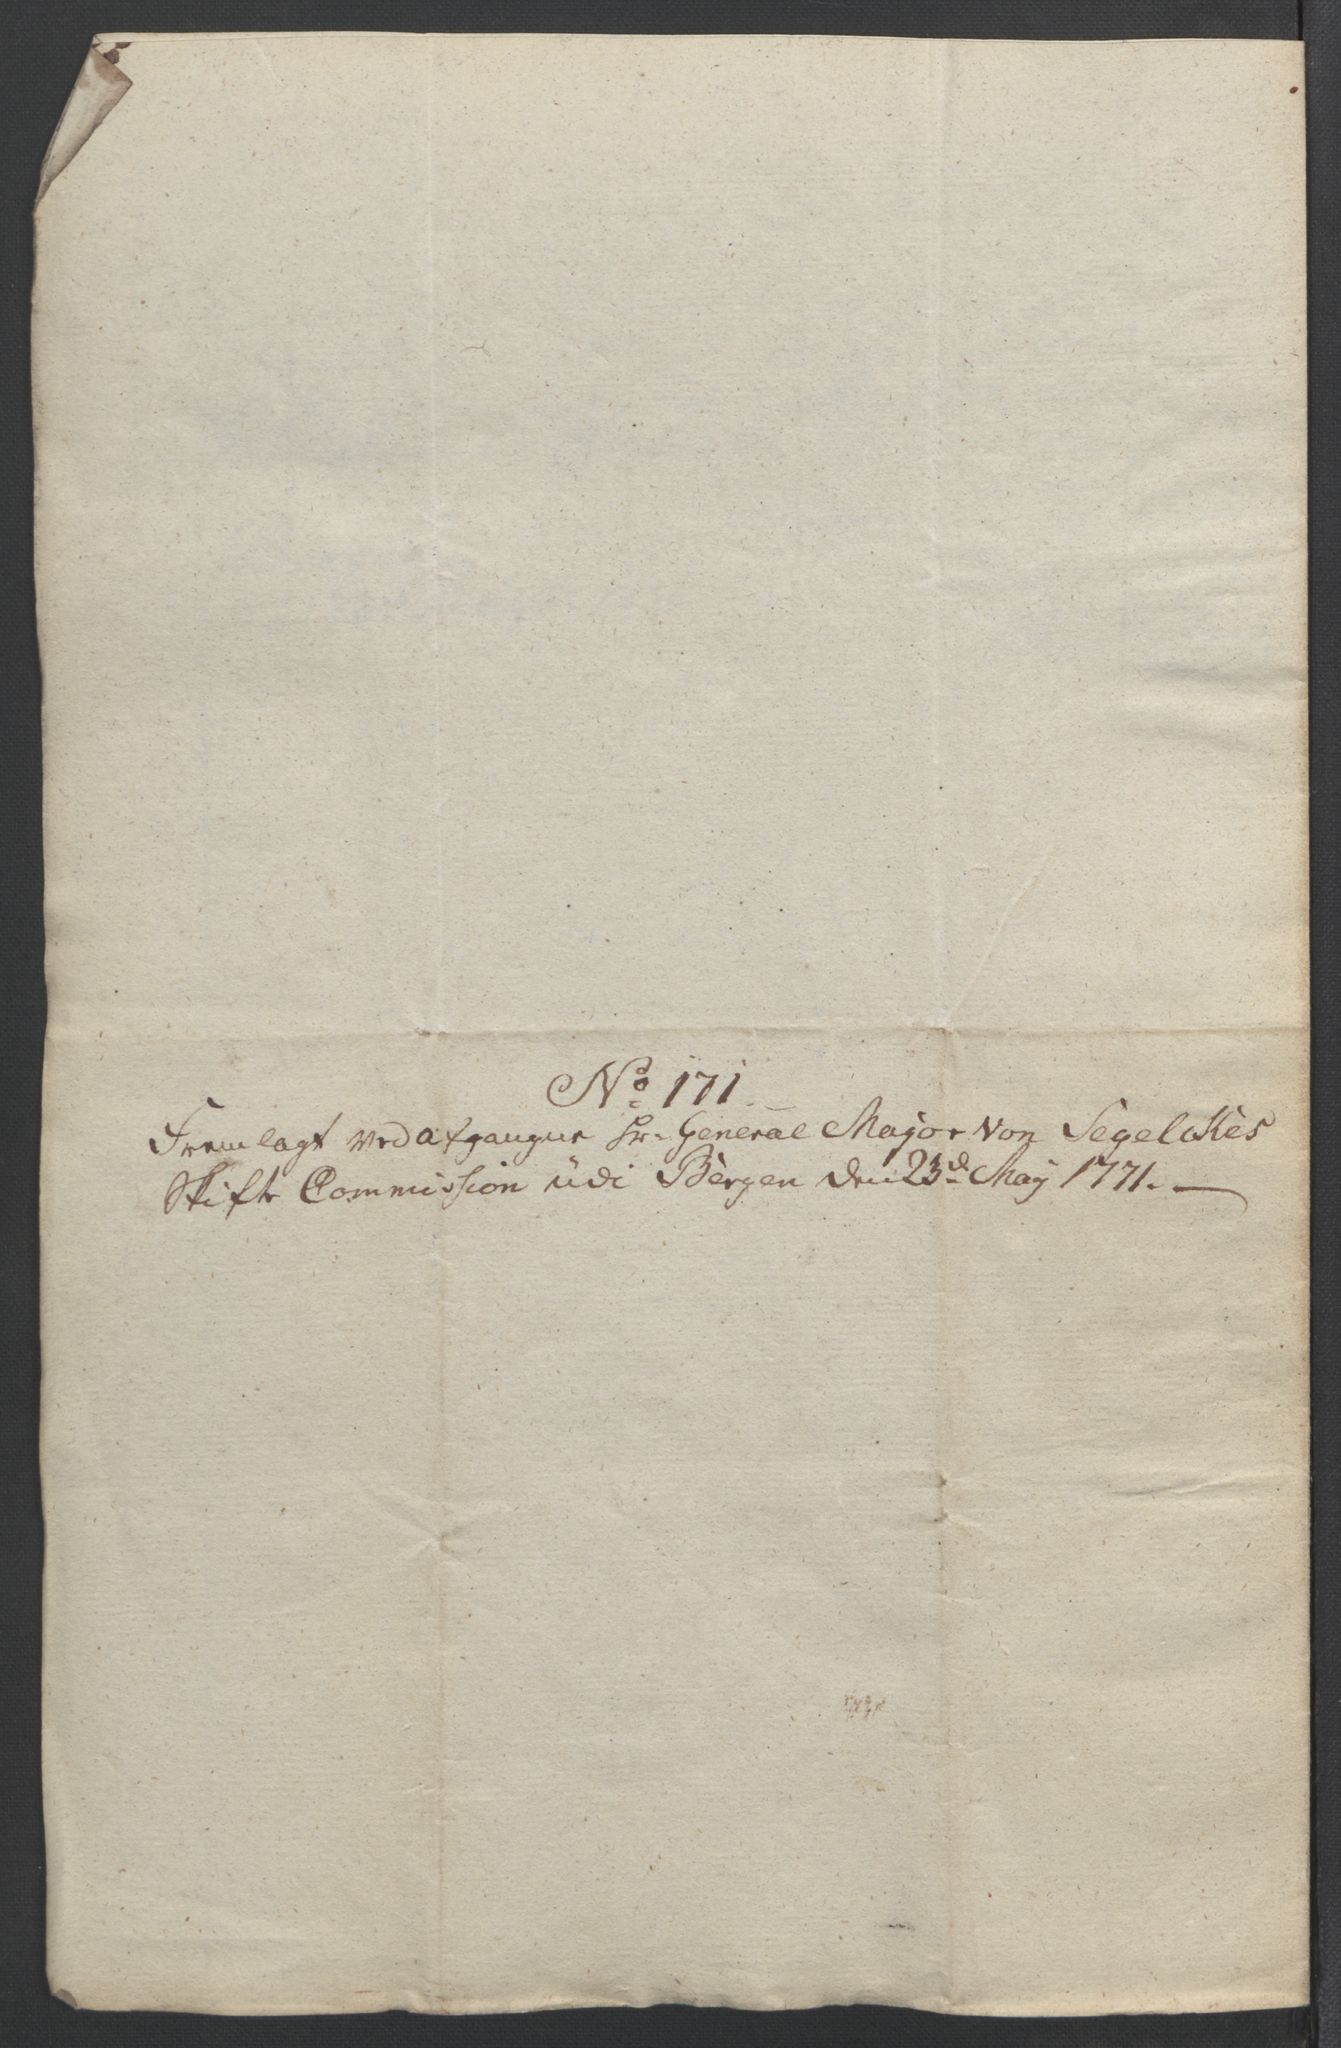 No 171.
Fremlagt ved afgangne Hr. General Major von Segelckes
Skifte Commission üdi Bergen den 23d May 1771.